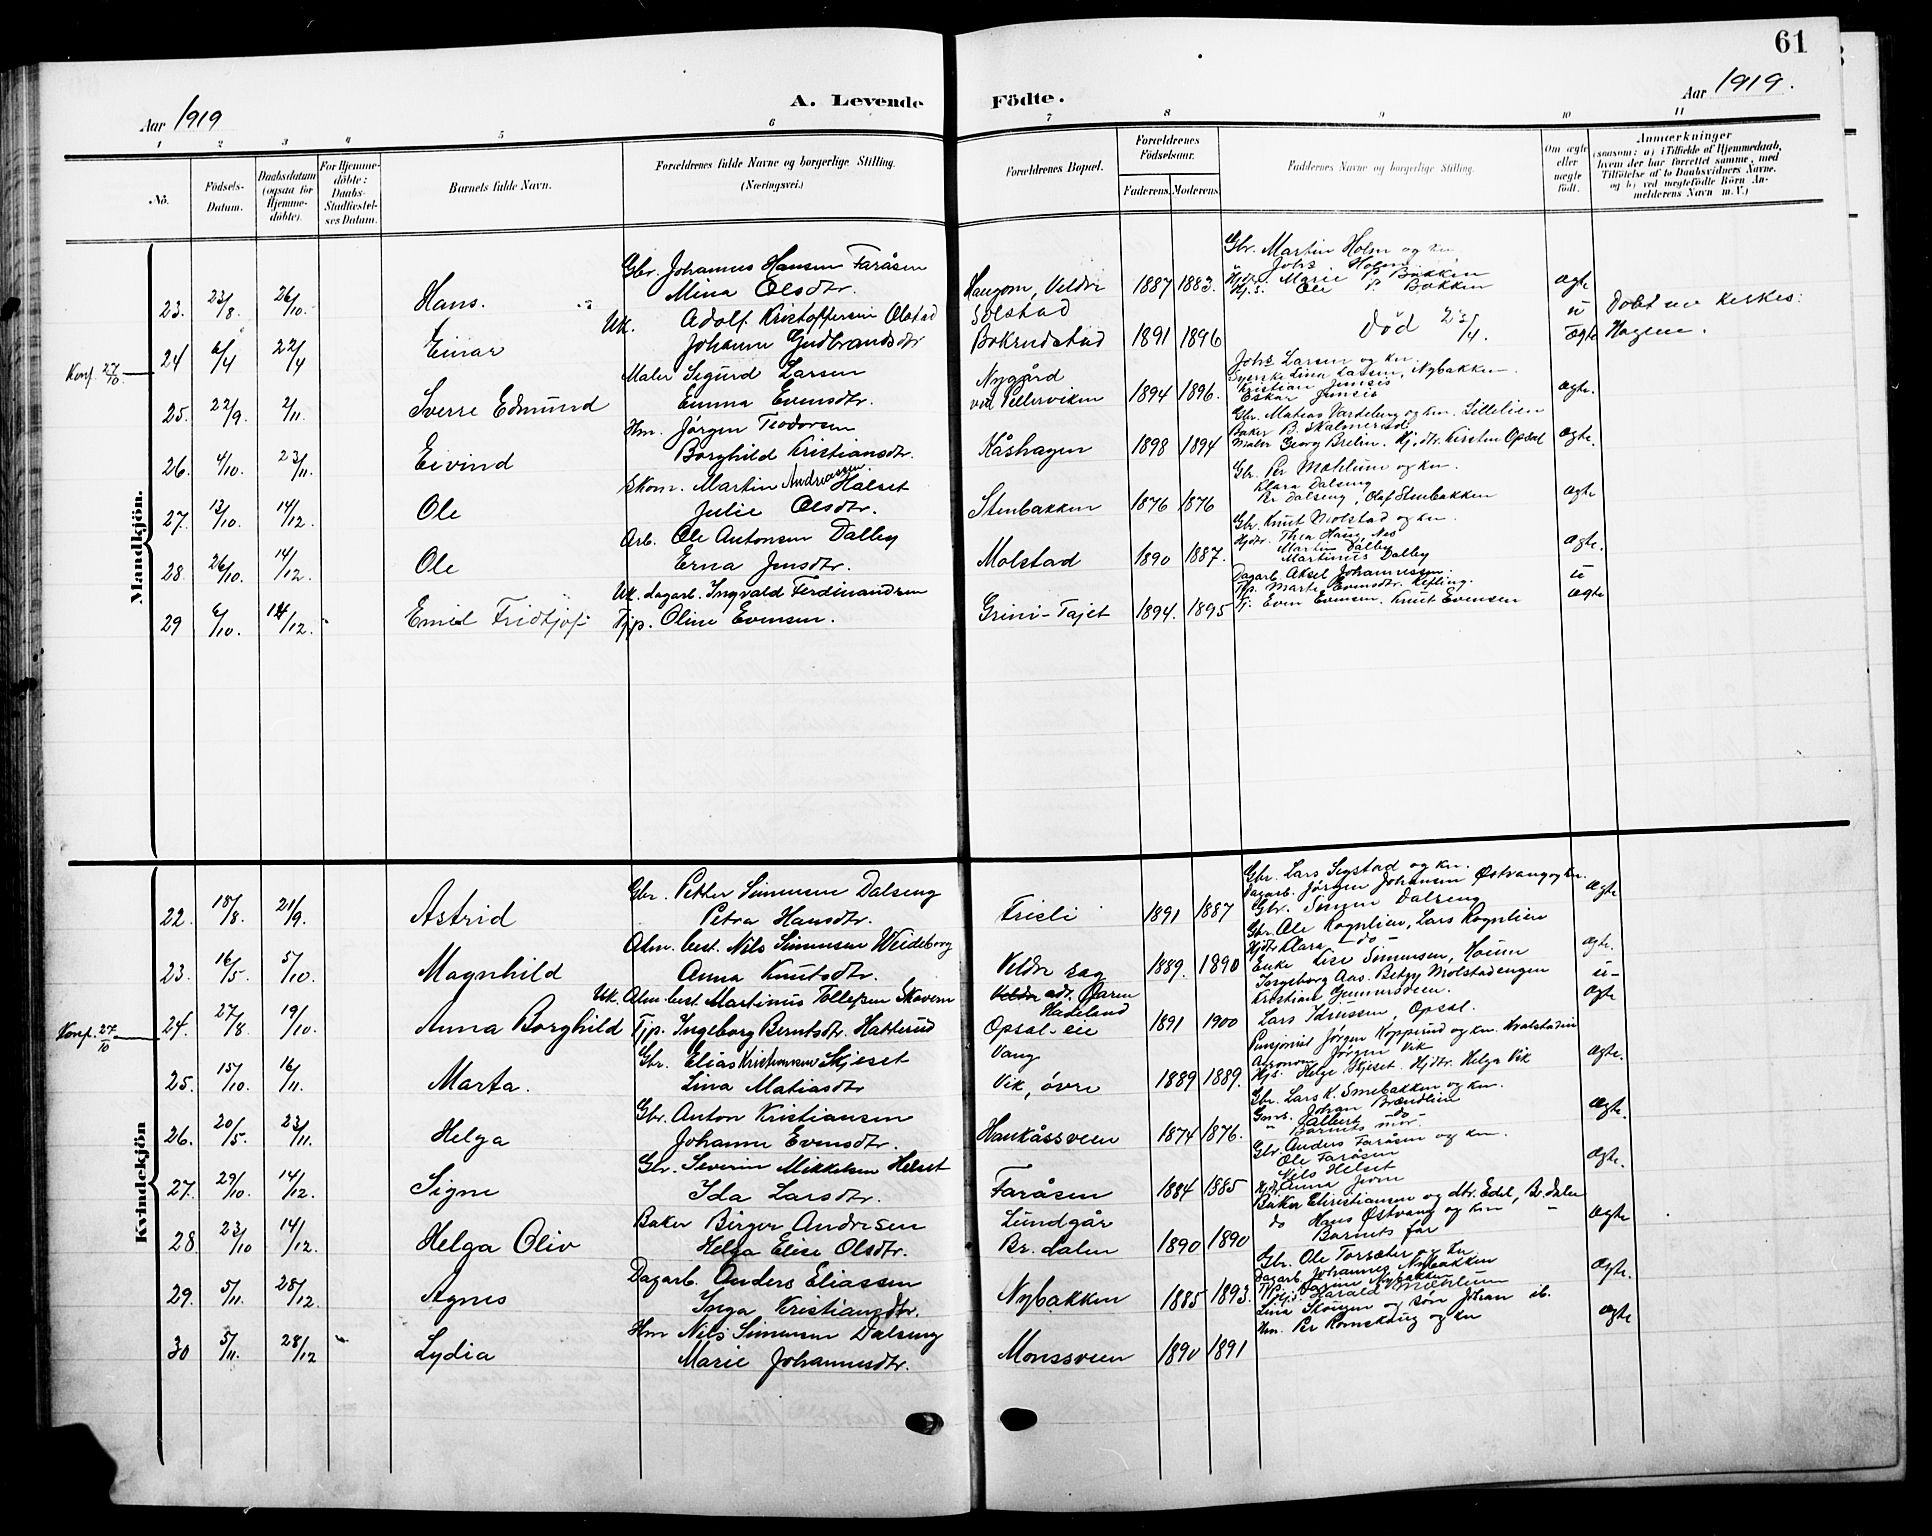 61
Aar 1919
A. Levende Födte.
Aar 1919.
1 2 3 4 5 6 7 8 9 10 11
No.
Födsels-Datum.
Daabsdatum (ogsaa for Hjemme-döbte).
For Hjemme-döbte: Daabs-Stadfæstel-ses Datum.
Barnets fulde Navn.
Forældrenes fulde Navne og borgerlige Stilling. (Næringsvei.)
Forældrenes Bopæl.
Forældrenes Födselsaar.
Faderens. Moderens.
Faddernes Navne og borgerlige Stilling.
Om ægte eller uægte født.
Anmærkninger (saasom: a) i Tilfælde af Hjemmedaab, hvem der har forrettet samme, med Tilföielse af to Daabsvidners Navne, og b) ved uægtefödte Börn An-melderens Navn m. V.)
Mandkjön.
Gbr. Johannes Hansen Faråsen
Gbr. Martin Holm og kn.
Johs Holm
23. 23/8 26/10. Hans. Mina Olsdtr. Haugom, Veldre 1887 1883. Marie P. Bakken ægte
Ole P. Bakken
Uk. Adolf Kristoffersen Olstad Solstad u Døbt
Konf. 27/10. 24 6/4 22/4 Einar Johanne Gudbrandsdtr Bokrudstad 1891 1896 Død 23/4. ægte Hagene.
Maler Sigurd Larsen Nygård Johs Larsen og kn.
25. 22/9. 2/11. Sverre Edmund Emma Evensdtr. ved Tellerviken 1894 1896. ægte.
Hm. Jørgen Teodorsen
Gbr. Matias Vardeberg og kn. Lillelien
26. 4/10. 23/11. Eivind Borghild Kristiansdtr. Kåshagen 1898 1894 Maler Georg Brelin. Hj.dtr. Kirsten Opsal ægte.
Skom. Martin Andreassen Halset
Gbr. Per Mæhlum og kn.
Klara Dalseng
27. 13/10. 14/12. Ole Julie Olsdtr. Stenbakken 1876 1876 Per Dalseng, Olaf Stenbakken ægte
Arb. Ole Antonsen Dalby
Gbr. Knut Molstad og kn.
28. 26/10. 14/12. Ole Erna Jensdtr. Molstad 1890 1887. Martin Dalby ægte.
Martinus Dalby
Uk. dagarb. Ingvald Ferdinandsen
Dagarb. Aksel Johannessen. u
Tjp. Marte Evensdtr. Kefling.
29 6/10. 14/12. Emil Fridtjof Tjp. Oline Evensen. Grini-Tajet 1894. 1895 Tj. Even Evensen. Knut Evensen ægte
Kvindekjön
Gbr. Petter Simensen Dalseng
Gbr. Lars Sigstad og kn.
Dagarb. Jørgen Johansen Østvang og kn.
22. 18/8. 21/9. Astrid Petra Hansdtr. Frisli 1891 1887 Gbr. Simen Dalseng ægte
Alm. best. Nils Simensen Weideborg
Gbr. Ole Rognlien, Lars Rognlien
Hjdtr. Clara do
23. 16/5. 5/10. Magnhild Anna Knutsdtr. Veldre sag 1889. 1890 Enke Lise Simensen, Hoium ægte.
Ingeborg Aas. Betzy Molstadengen
Uk. Alm. best. Martinus Tollefsen Skovem Veldre adr. Garen Hadeland Kristian Gunnersveen. u
Konf. 27/10 24. 27/8 19/10. Anna Borghild Tjp. Ingeborg Berntsdtr. Hatterud Opsal-eie 1891 1900 Lars Idrussen, Opsal. ægte
Gbr. Elias Kristiansen Skjeset Vang
Pensjonist Jørgen Kopperud og kn. Kvalstadeie
Agronom Jørgen Vik
25. 15/10. 16/11. Marta. Lina Matiasdtr Vik, øvre 1889 1889. Hjs. Helge Skjeset. Hjdtr. Helga Vik ægte.
Gbr. Anton Kristiansen
Gbr. Lars K. Smebakken og kn.
Gms. Johan Brændlien
26. 20/5. 23/11. Helga Johanne Evensdtr. Haukåssveen 1874 1876. Barnets mor. ægte.
Gbr. Severin Mikkelsen Helset
Gbr. Anders Faråsen og kn.
Ole Faråsen
Nils Helset
27. 29/10. 14/12. Signe Ida Larsdtr. Faråsen 1884 1885 ægte.
Baker Birger Andresen Lundgår
Baker Christiansen og dtr. Edel, Br.dalen
do Hans Østvang og kn "
28. 23/10 14/12. Helga Oliv Helga Elise Olsdtr. Br.dalen 1890 1890 Barnets far ægte
Dagarb. Anders Eliassen
Gbr. Ole Torsæter og kn.
Dagarb. Johannes Nybakken
29. 5/11. 28/12. Agnes Inga Kristiansdtr. Nybakken 1885 1893. Harald Mæhlum ægte.
Hm Nils Simensen Dalseng
Lina Skougen og søn Johan ib.
Hm. Per Romskaug og kn
30 5/11. 28/12 Lydia Marie Johannesdtr. Monssveen 1890 1891 ægte